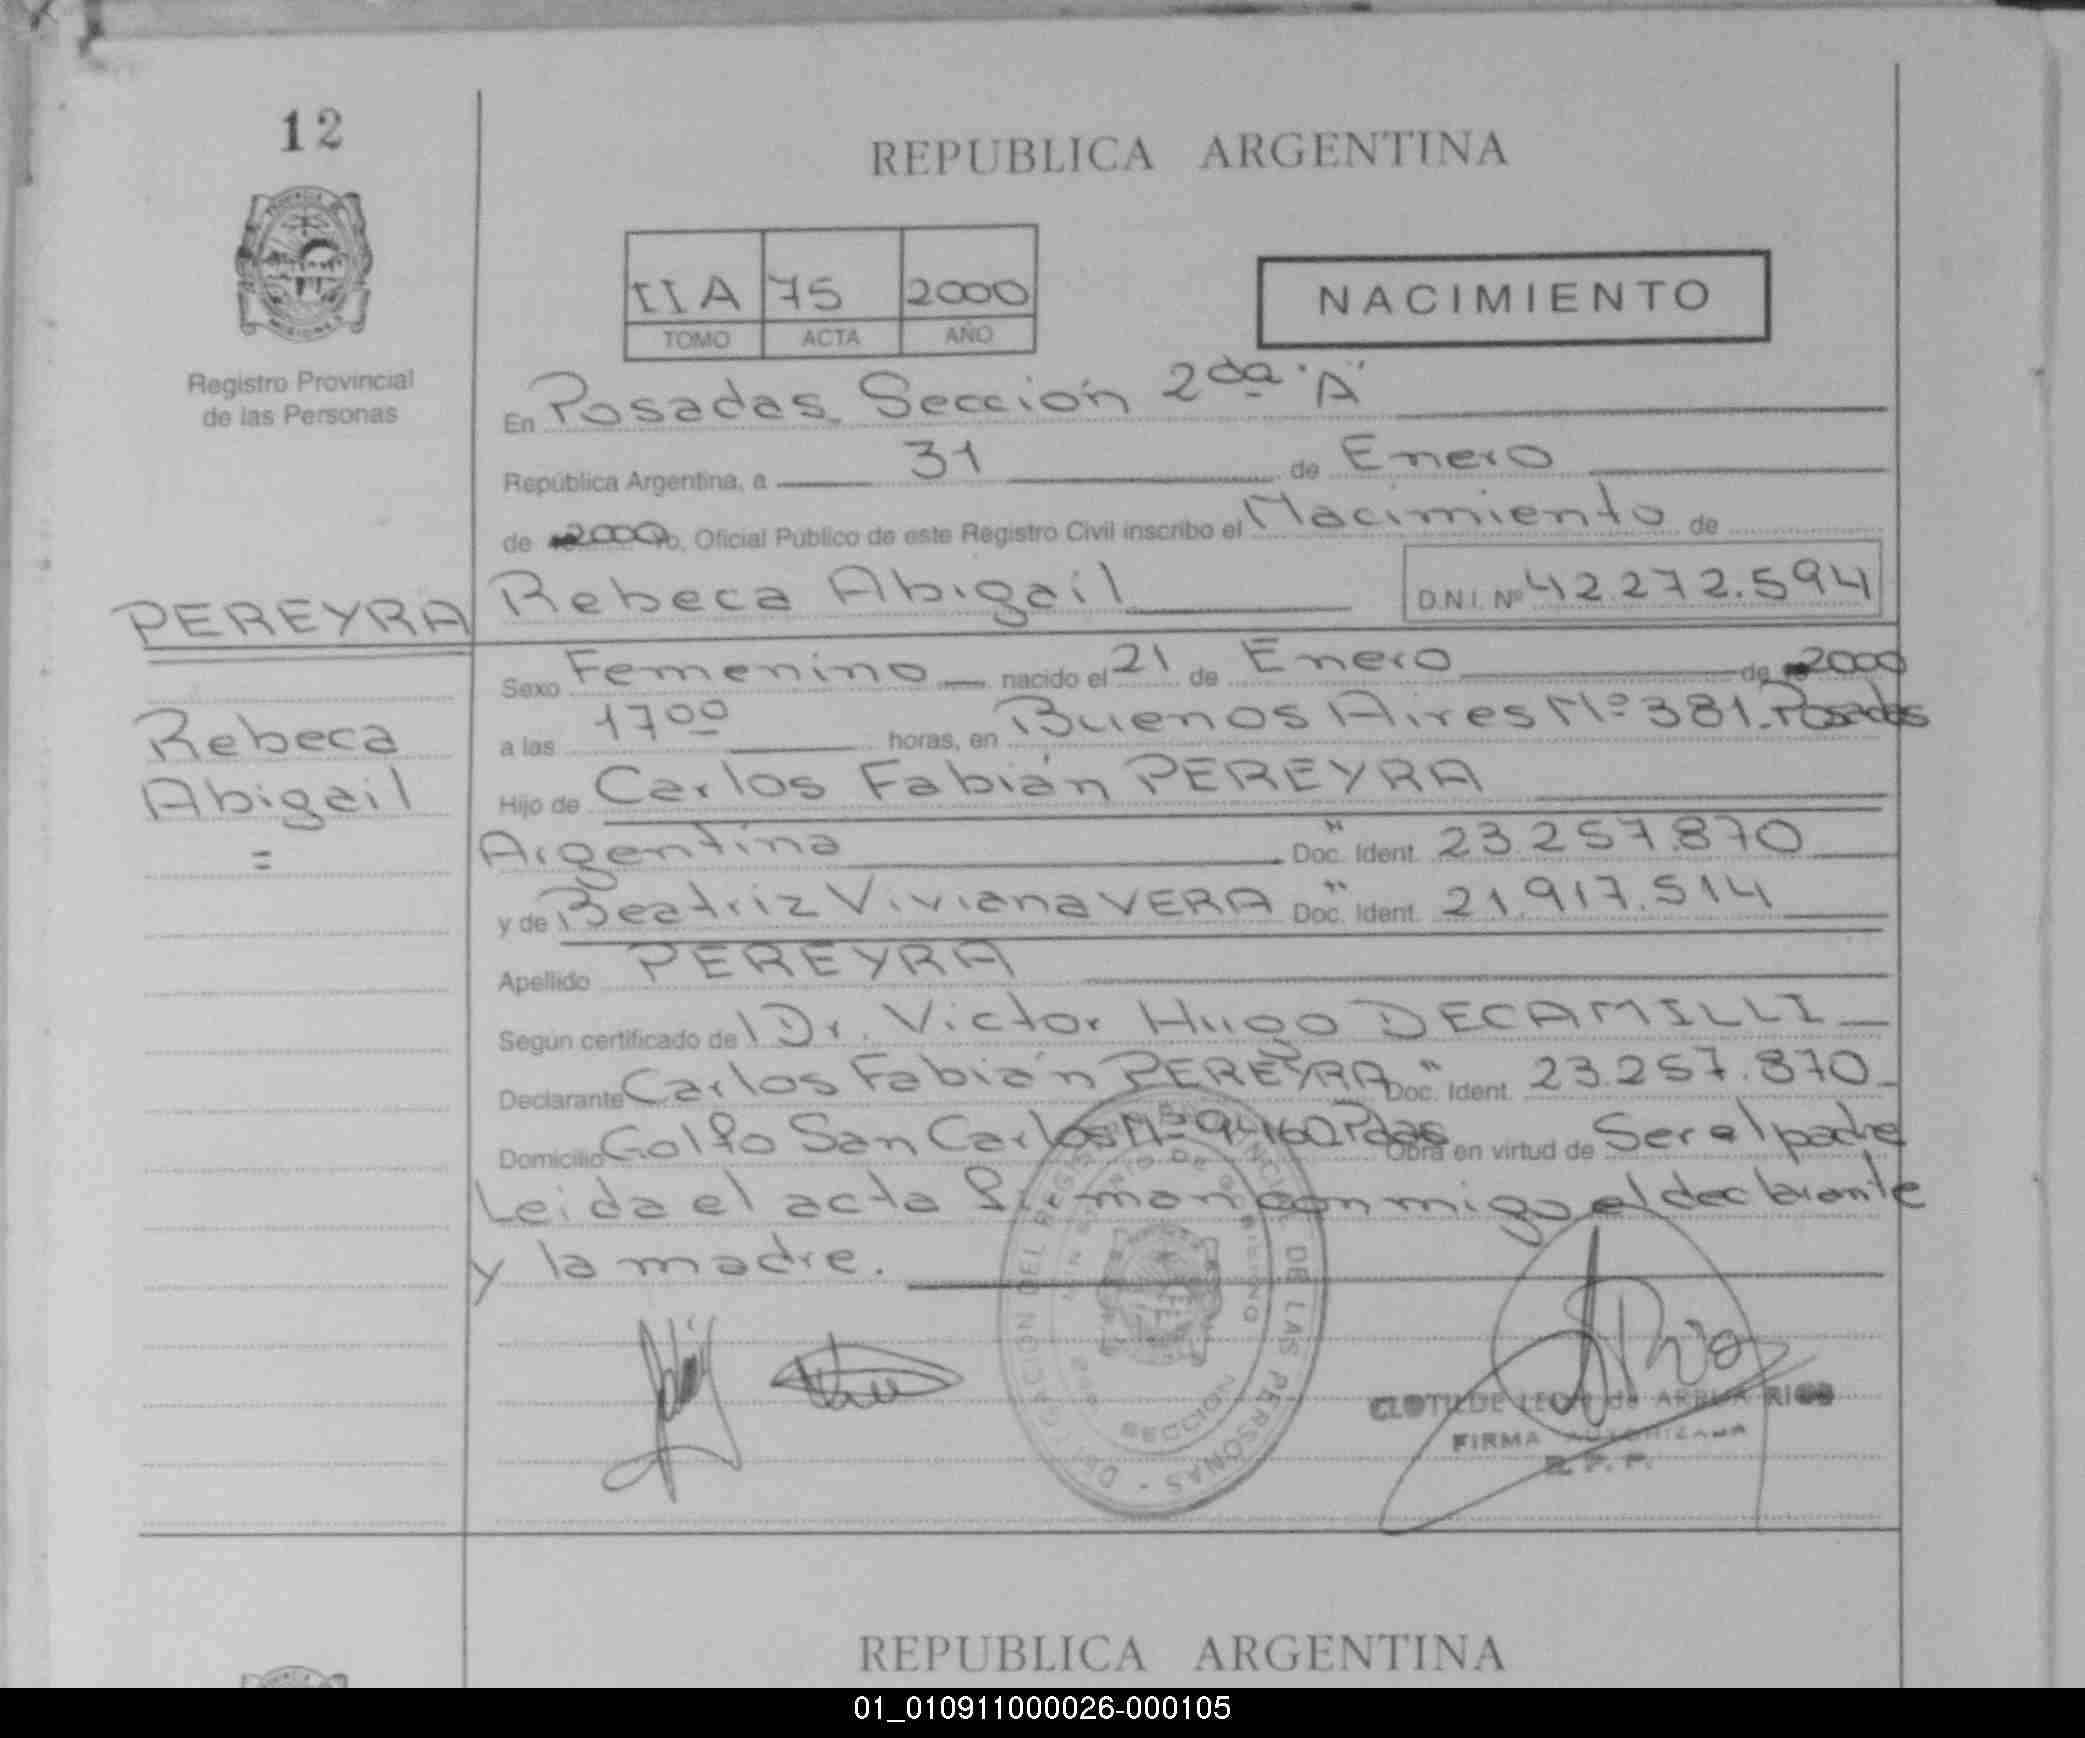 12
REPUBLICA ARGENTINA
IIA 75 2000
TOMO ACTA AÑO
NACIMIENTO
Registro Provincial
de las Personas
En Posadas, Sección 2da "A"
República Argentina, a 31 de Enero
de 2000 yo, Oficial Público de este Registro Civil inscribo el Nacimiento de
PEREYRA
Rebeca Abigail D.N.I. Nº 42.272.594
Sexo Femenino nacido el 21 de Enero de 2000
Rebeca
Abigail
=
a las 17 00 horas, en Buenos Aires Nº 381. Posadas
Hijo de Carlos Fabián PEREYRA
Argentina Doc. Ident. 23.257.870
y de Beatriz Viviana VERA Doc. Ident. 21.917.514
Apellido PEREYRA
Según certificado del Dr. Victor Hugo DECAMILLI
Declarante Carlos Fabián PEREYRA Doc. Ident. 23.257.870
Domicilio Golfo San Carlos Nº Pdas Obra en virtud de Ser el padre
Leida el acta firman conmigo el declarante
y la madre.
DELEGACION DEL REGISTRO PROVINCIAL DE LAS PERSONAS
SECCION
CLOTILDE LEON de ARRUA RIOS
FIRMA AUTORIZADA
R. P. P.
REPUBLICA ARGENTINA
01_010911000026-000105